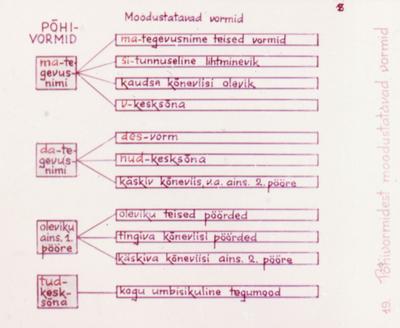 8
PÕHI-
VORMID
Moodustatavad vormid
ma-te-
gevus-
nimi
ma-tegevusnime teised vormid
si-tunnuseline lihtminevik
kaudse kõneviisi olevik
v-kesksõna
da-te-
gevus-
nimi
des-vorm
nud-kesksõna
käskiv kõneviis, v.a. ains. 2. pööre
oleviku
ains. 1.
pööre
oleviku teised pöörded
tingiva kõneviisi pöörded
käskiva kõneviisi ains. 2. pööre
tud-
kesk-
sõna
kogu umbisikuline tegumood
19. Põhivormidest moodustatavad vormid